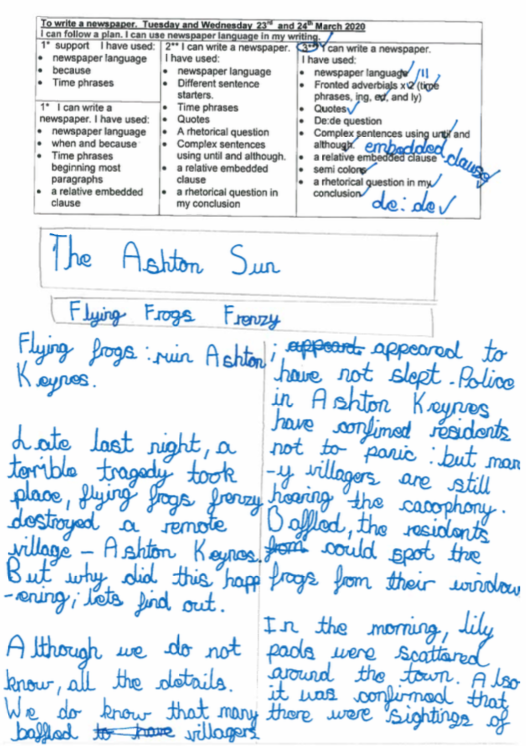 To write a newspaper. Tuesday and Wednesday 23rd and 24th March 2020
I can follow a plan. I can use newspaper language in my writing.
1* support I have used:
• newspaper language
• because
• Time phrases
1* I can write a
newspaper. I have used:
• newspaper language
• when and because
• Time phrases
beginning most
paragraphs
• a relative embedded
clause
2** I can write a newspaper.
I have used:
• newspaper language
• Different sentence
starters.
• Time phrases
• Quotes
• A rhetorical question
• Complex sentences
using until and although.
• a relative embedded
clause
• a rhetorical question in
my conclusion
3** I can write a newspaper.
I have used:
• newspaper language
• Fronted adverbials x 2 (time
phrases, ing, ed, and ly)
• Quotes
• De:de question
• Complex sentences using until and
although embedded clause
• a relative embedded clause
• semi colons
• a rhetorical question in my
conclusion
de:de
The Ashton Sun
Flying Frogs Frenzy
Flying frogs : ruin Ashton
Keynes.
Late last night, a
terrible tragedy took
place, flying frogs frenzy
destroyed a remote
village - Ashton Keynes.
But why did this happ
-ening; lets find out.
Although we do not
know, all the details.
We do know that many
baffled to have villagers
; appeart appeared to
have not slept. Police
in Ashton Keynes
have confimed residents
not to panic : but man
-y villagers are still
hearing the cacophony.
Baffled, the residents
from could spot the
frogs from their window
In the morning, lily
pads were scattered
around the town. Also
it was confirmed that
there were sightings of